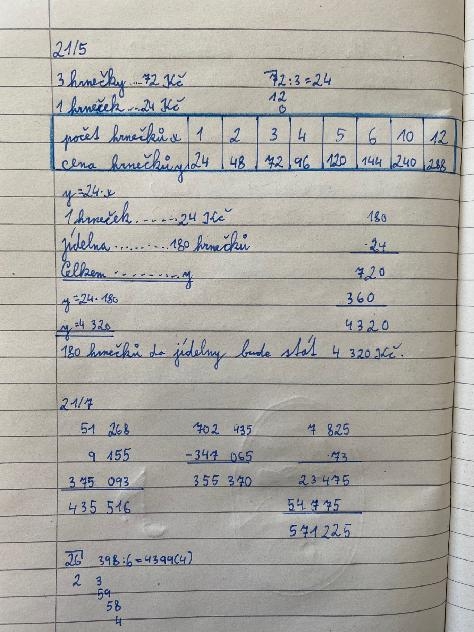 21/5
3 hrnečky ... 72 Kč 72:3=24
1 hrneček ... 24 Kč 12
0
počet hrnečků x 1 2 3 4 5 6 10 12
cena hrnečků y 24 48 72 96 120 144 240 288
y=24·x
1 hrneček ........ 24 Kč 180
jídelna ......... 180 hrnečků ·24
Celkem .......... y 720
y=24·180 360
y=4 320 4320
180 hrnečků do jídelny bude stát 4 320 Kč.
21/7
51 268 702 435 7 825
9 155 -347 065 ·73
375 093 355 370 23 475
435 516 54 775
571 225
26 398:6=4399(4)
2 3
59
58
4